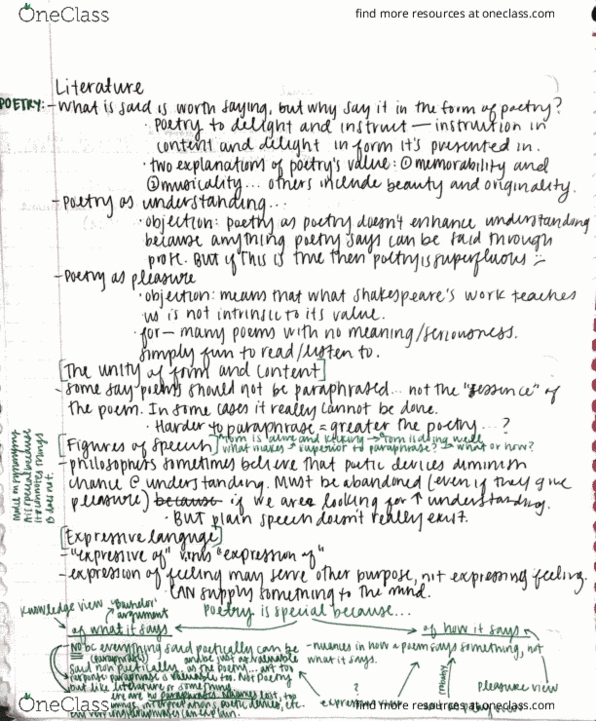 OneClass
find more resources at oneclass.com
Literature
POETRY: - What is said is worth saying, but why say it in the form of poetry?
· poetry to delight and instruct — instruction in
content and delight in form it's presented in.
· two explanations of poetry's value: ① memorability and
② musicality... others include beauty and originality.
- Poetry as understanding...
· objection: poetry as poetry doesn't enhance understanding
because anything poetry says can be said through
prose. But if this is true then poetry is superfluous :-
- Poetry as pleasure
· objection: means that what Shakespeare's work teaches
us is not intrinsic to its value.
· for - many poems with no meaning/seriousness.
simply fun to read/listen to.
[The unity of form and content]
- some say poems should not be paraphrased... not the "essence" of
the poem. In some cases it really cannot be done.
· Harder to paraphrase = greater the poetry...?
[Figures of speech] "Tom is alive and kicking → Tom is doing well
what makes superior to paraphrase? → what or how?
- philosophers sometimes believe that poetic devices diminish
chance @ understanding. Must be abandoned (even if they give
pleasure) because if we are looking for ↑ understanding.
· But plain speech doesn't really exist.
[Expressive language]
- "expressive of" "expression of"
- expression of feeling may serve other purpose, not expressing feeling.
CAN supply something to the mind.
Knowledge view "Bachelor" argument
Poetry is special because...
of what it says
of how it says
- No bc everything said poetically can be
said non poetically
and be just as valuable
as the poem...
- nuances in how a poem says something, not
what it says.
paraphrase is valuable too. Not poetry
but like literature or something
there are no paraphrases
pleasure view
?
OneClass
find more resources at oneclass.com